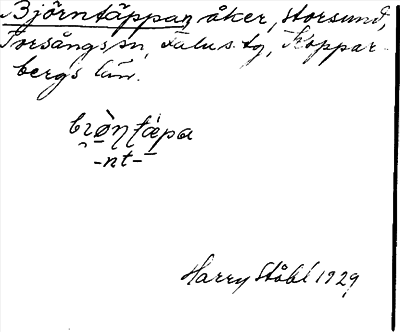 Björntäppan, åker, Storsund,
Torsångs sn, Falu s. tg, Koppar-
bergs län.
brøntäpa
-nt-
Harry Ståhl 1929